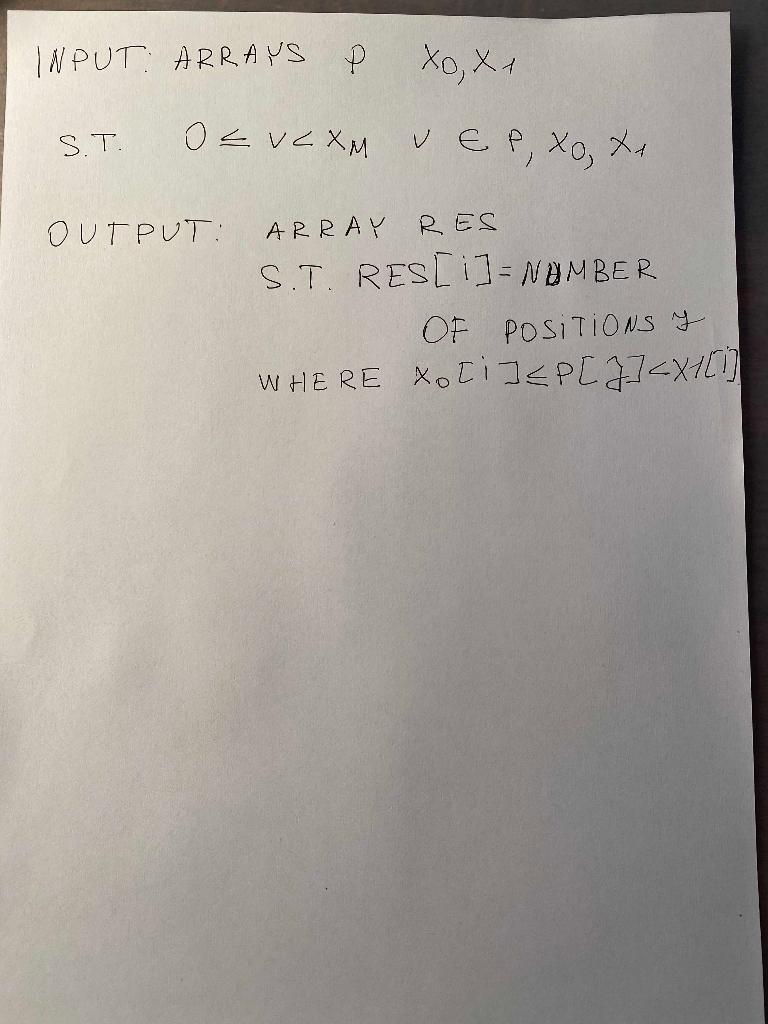 INPUT: ARRAYS P X0, X1
S.T. 0 ≤ V < XM V ∈ P, X0, X1
OUTPUT: ARRAY RES
S.T. RES[i] = NUMBER
OF POSITIONS J
WHERE X0[i] ≤ P[J] < X1[i]